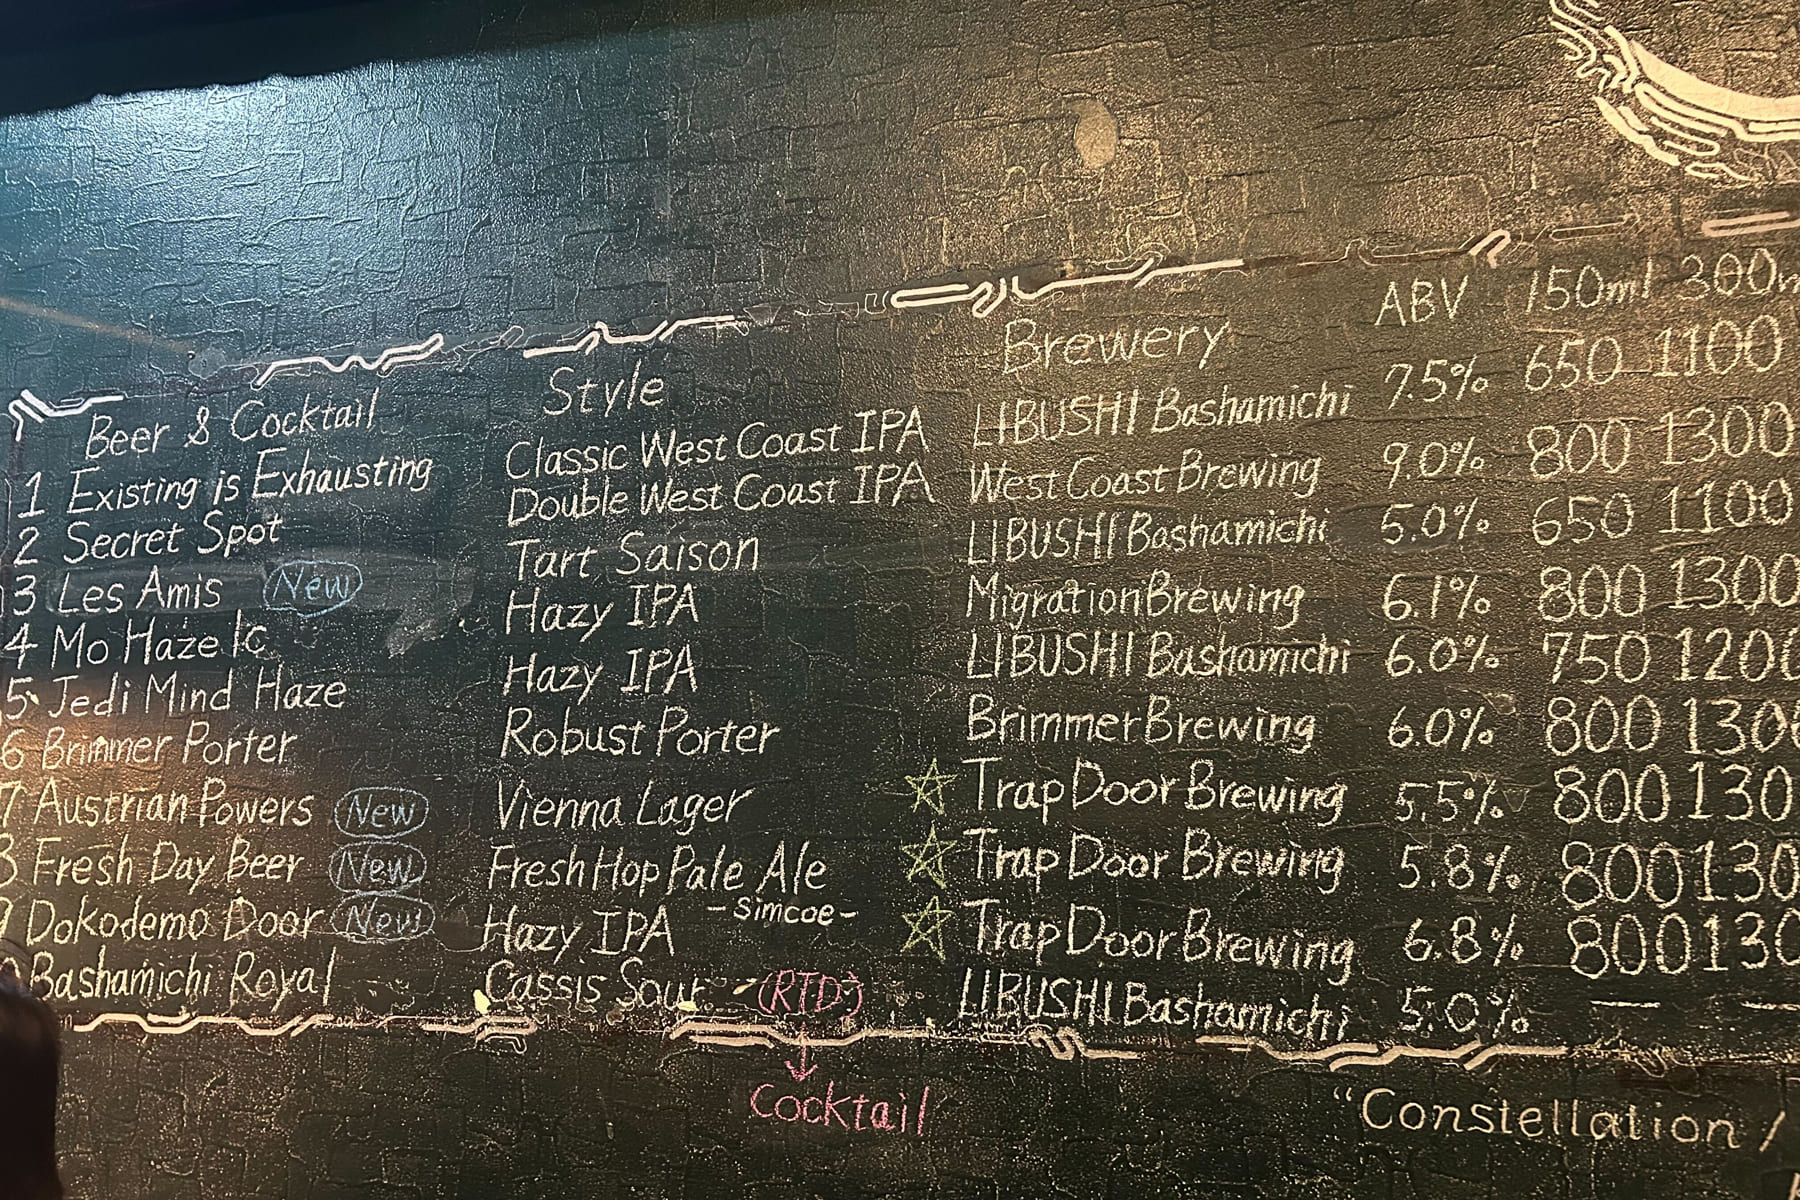 Beer & Cocktail Style Brewery ABV 150ml 300m
1 Existing is Exhausting Classic West Coast IPA LIBUSHI Bashamichi 7.5% 650 1100
2 Secret Spot Double West Coast IPA West Coast Brewing 9.0% 800 1300
3 Les Amis New Tart Saison LIBUSHI Bashamichi 5.0% 650 1100
4 Mo Haze Ic Hazy IPA Migration Brewing 6.1% 800 1300
5 Jedi Mind Haze Hazy IPA LIBUSHI Bashamichi 6.0% 750 1200
6 Brimmer Porter Robust Porter Brimmer Brewing 6.0% 800 1300
7 Austrian Powers New Vienna Lager ☆ Trap Door Brewing 5.5% 800 130
8 Fresh Day Beer New Fresh Hop Pale Ale ☆ Trap Door Brewing 5.8% 800 130
-Simcoe-
9 Dokodemo Door New Hazy IPA ☆ Trap Door Brewing 6.8% 800 130
Bashamichi Royal Cassis Sour (RTD) LIBUSHI Bashamichi 5.0% — —
↓
Cocktail
"Constellation /